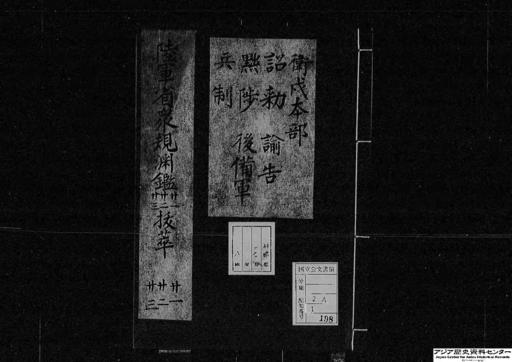 衛戍本部
詔勅 諭告
黙陟 後備軍
兵制
陸軍省衆規淵鑑 廿一 廿二 廿三 抜萃
廿一
廿二
廿三
国立公文書館
分類
配架番号
2 A
1
198
アジア歴史資料センター
Japan Center for Asian Historical Records